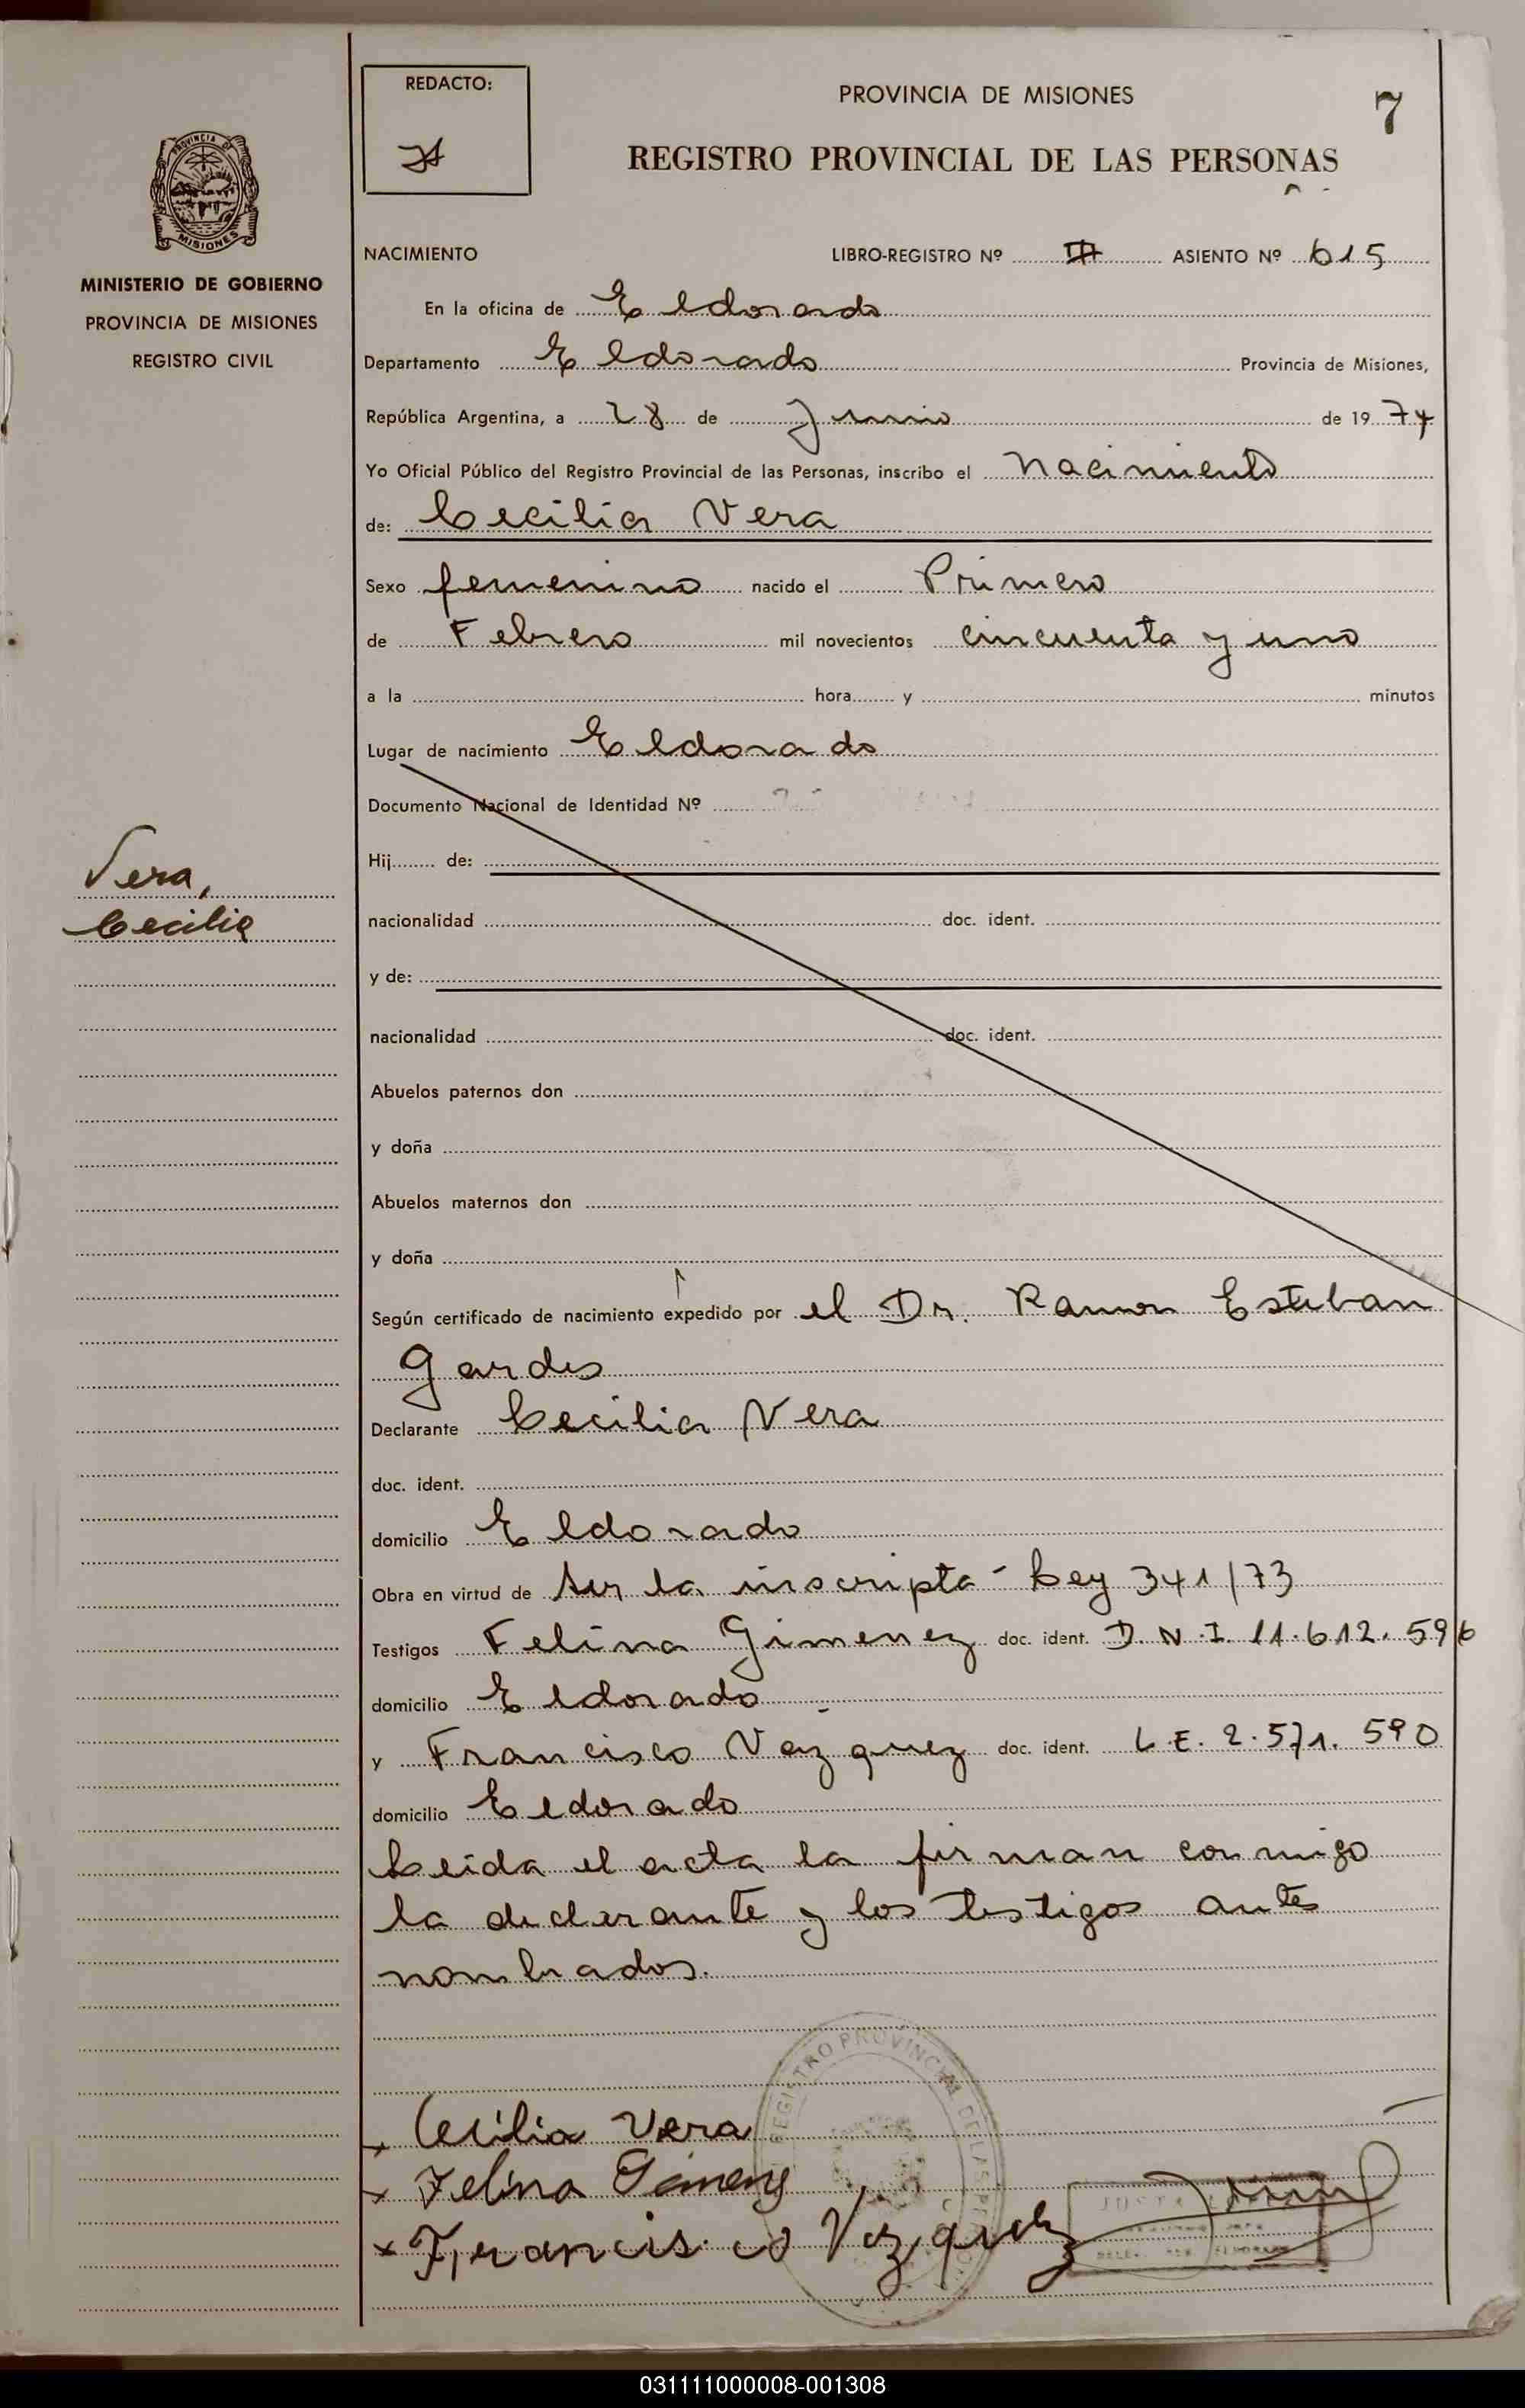 REDACTO:
PROVINCIA DE MISIONES
7
REGISTRO PROVINCIAL DE LAS PERSONAS
PROVINCIA DE
MISIONES
MINISTERIO DE GOBIERNO
PROVINCIA DE MISIONES
REGISTRO CIVIL
NACIMIENTO LIBRO-REGISTRO Nº III ASIENTO Nº 615
En la oficina de Eldorado
Departamento Eldorado Provincia de Misiones,
República Argentina, a 28 de Junio de 19 74
Yo Oficial Público del Registro Provincial de las Personas, inscribo el nacimiento
de: Cecilia Vera
Sexo femenino nacido el Primero
de Febrero mil novecientos cincuenta y uno
a la hora y minutos
Lugar de nacimiento Eldorado
Documento Nacional de Identidad Nº
Hij de:
Vera,
Cecilia
nacionalidad doc. ident.
y de:
nacionalidad doc. ident.
Abuelos paternos don
y doña
Abuelos maternos don
y doña
Según certificado de nacimiento expedido por el Dr. Ramon Esteban
Gardes
Declarante Cecilia Vera
doc. ident.
domicilio Eldorado
Obra en virtud de ser la inscripta - Ley 341/73
Testigos Felina Gimenez doc. ident. D.N.I. 11.612.596
domicilio Eldorado
y Francisco Vazquez doc. ident. L.E. 2.571.590
domicilio Eldorado
Leida el acta la firman conmigo
la declarante y los testigos antes
nombrados.
REGISTRO PROVINCIAL DE LAS PERSONAS
x Cecilia Vera
x Felina Gimenz
x Francisco Vazquez
031111000008-001308